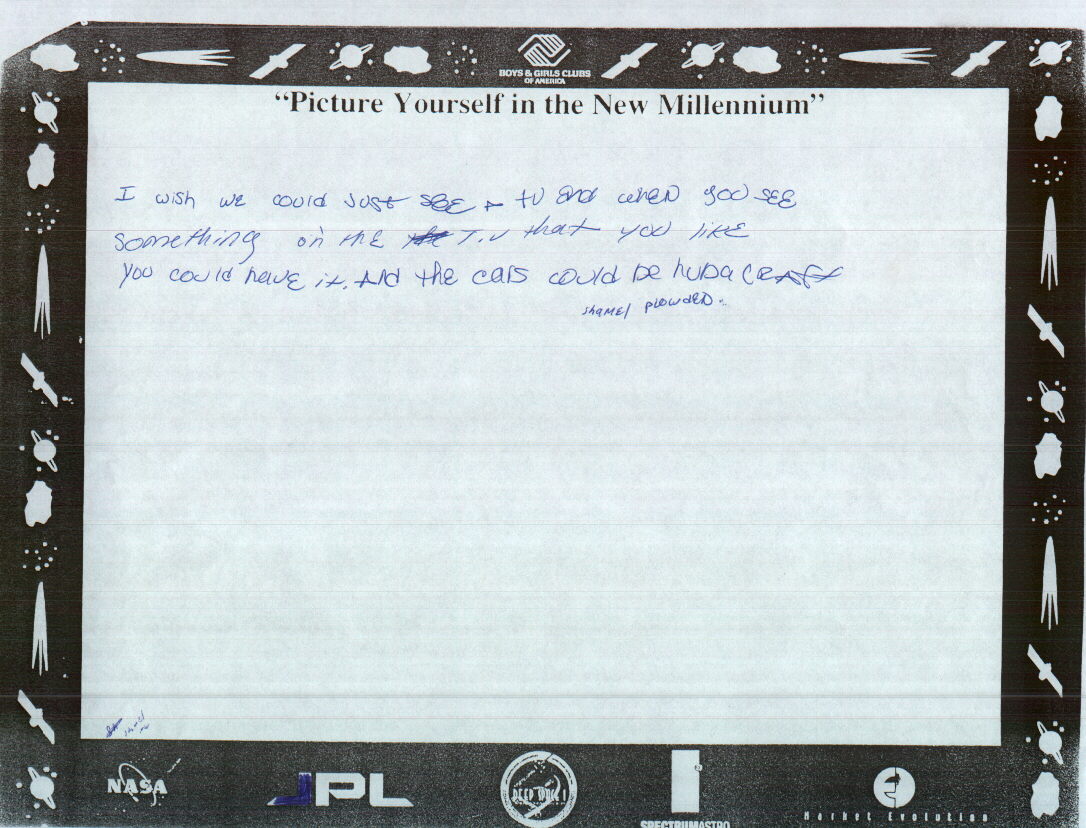 BOYS & GIRLS CLUBS
OF AMERICA
“Picture Yourself in the New Millennium”
I wish we could just see a tv and when you see
something on the T.V that you like
you could have it. And the cars could be huba craft
shamel plowden.
NASA
JPL
DEEP SPACE 1
SPECTRUMASTRO
Market Evolution